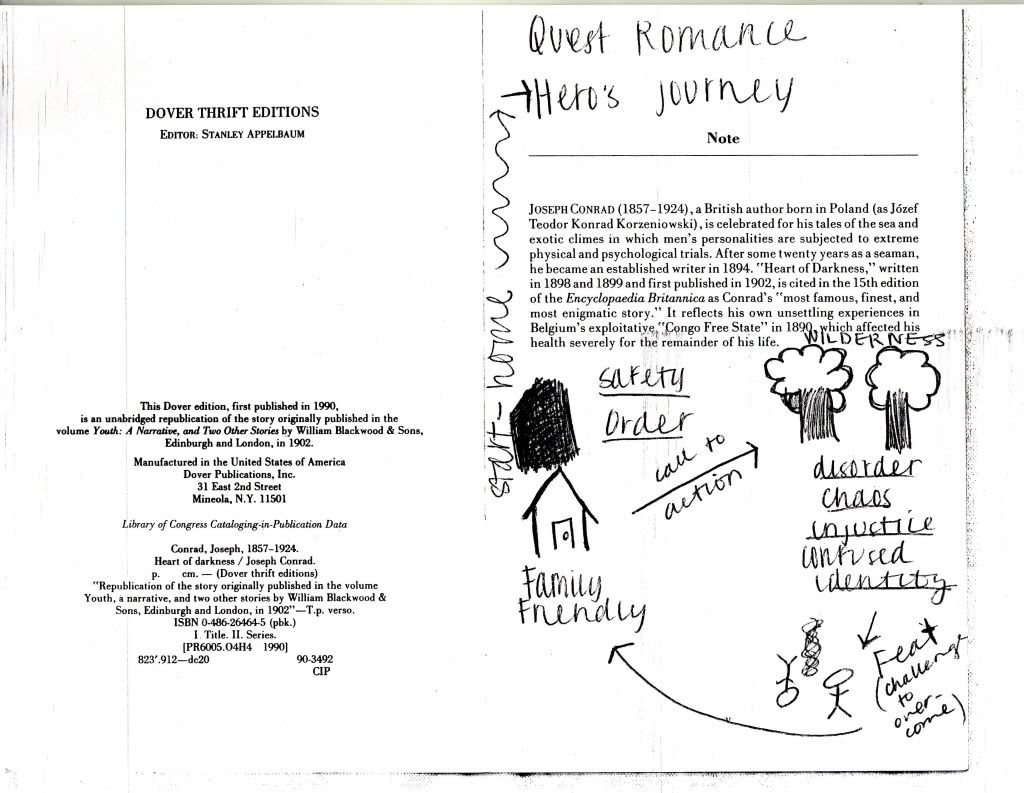 DOVER THRIFT EDITIONS
EDITOR: STANLEY APPELBAUM
This Dover edition, first published in 1990,
is an unabridged republication of the story originally published in the
volume Youth: A Narrative, and Two Other Stories by William Blackwood & Sons,
Edinburgh and London, in 1902.
Manufactured in the United States of America
Dover Publications, Inc.
31 East 2nd Street
Mineola, N.Y. 11501
Library of Congress Cataloging-in-Publication Data
Conrad, Joseph, 1857–1924.
Heart of darkness / Joseph Conrad.
p. cm. — (Dover thrift editions)
"Republication of the story originally published in the volume
Youth, a narrative, and two other stories by William Blackwood &
Sons, Edinburgh and London, in 1902"—T.p. verso.
ISBN 0-486-26464-5 (pbk.)
I Title. II. Series.
[PR6005.O4H4 1990]
823'.912—dc20 90-3492
CIP
Quest Romance
→Hero's journey
Note
JOSEPH CONRAD (1857–1924), a British author born in Poland (as Józef
Teodor Konrad Korzeniowski), is celebrated for his tales of the sea and
exotic climes in which men's personalities are subjected to extreme
physical and psychological trials. After some twenty years as a seaman,
he became an established writer in 1894. "Heart of Darkness," written
in 1898 and 1899 and first published in 1902, is cited in the 15th edition
of the Encyclopaedia Britannica as Conrad's "most famous, finest, and
most enigmatic story." It reflects his own unsettling experiences in
Belgium's exploitative "Congo Free State" in 1890, which affected his
health severely for the remainder of his life.
start-home
WILDERNESS
safety
Order
call to
action
disorder
chaos
injustice
confused
identity
Family
Friendly
Feat
(challenge
to
over-
come)